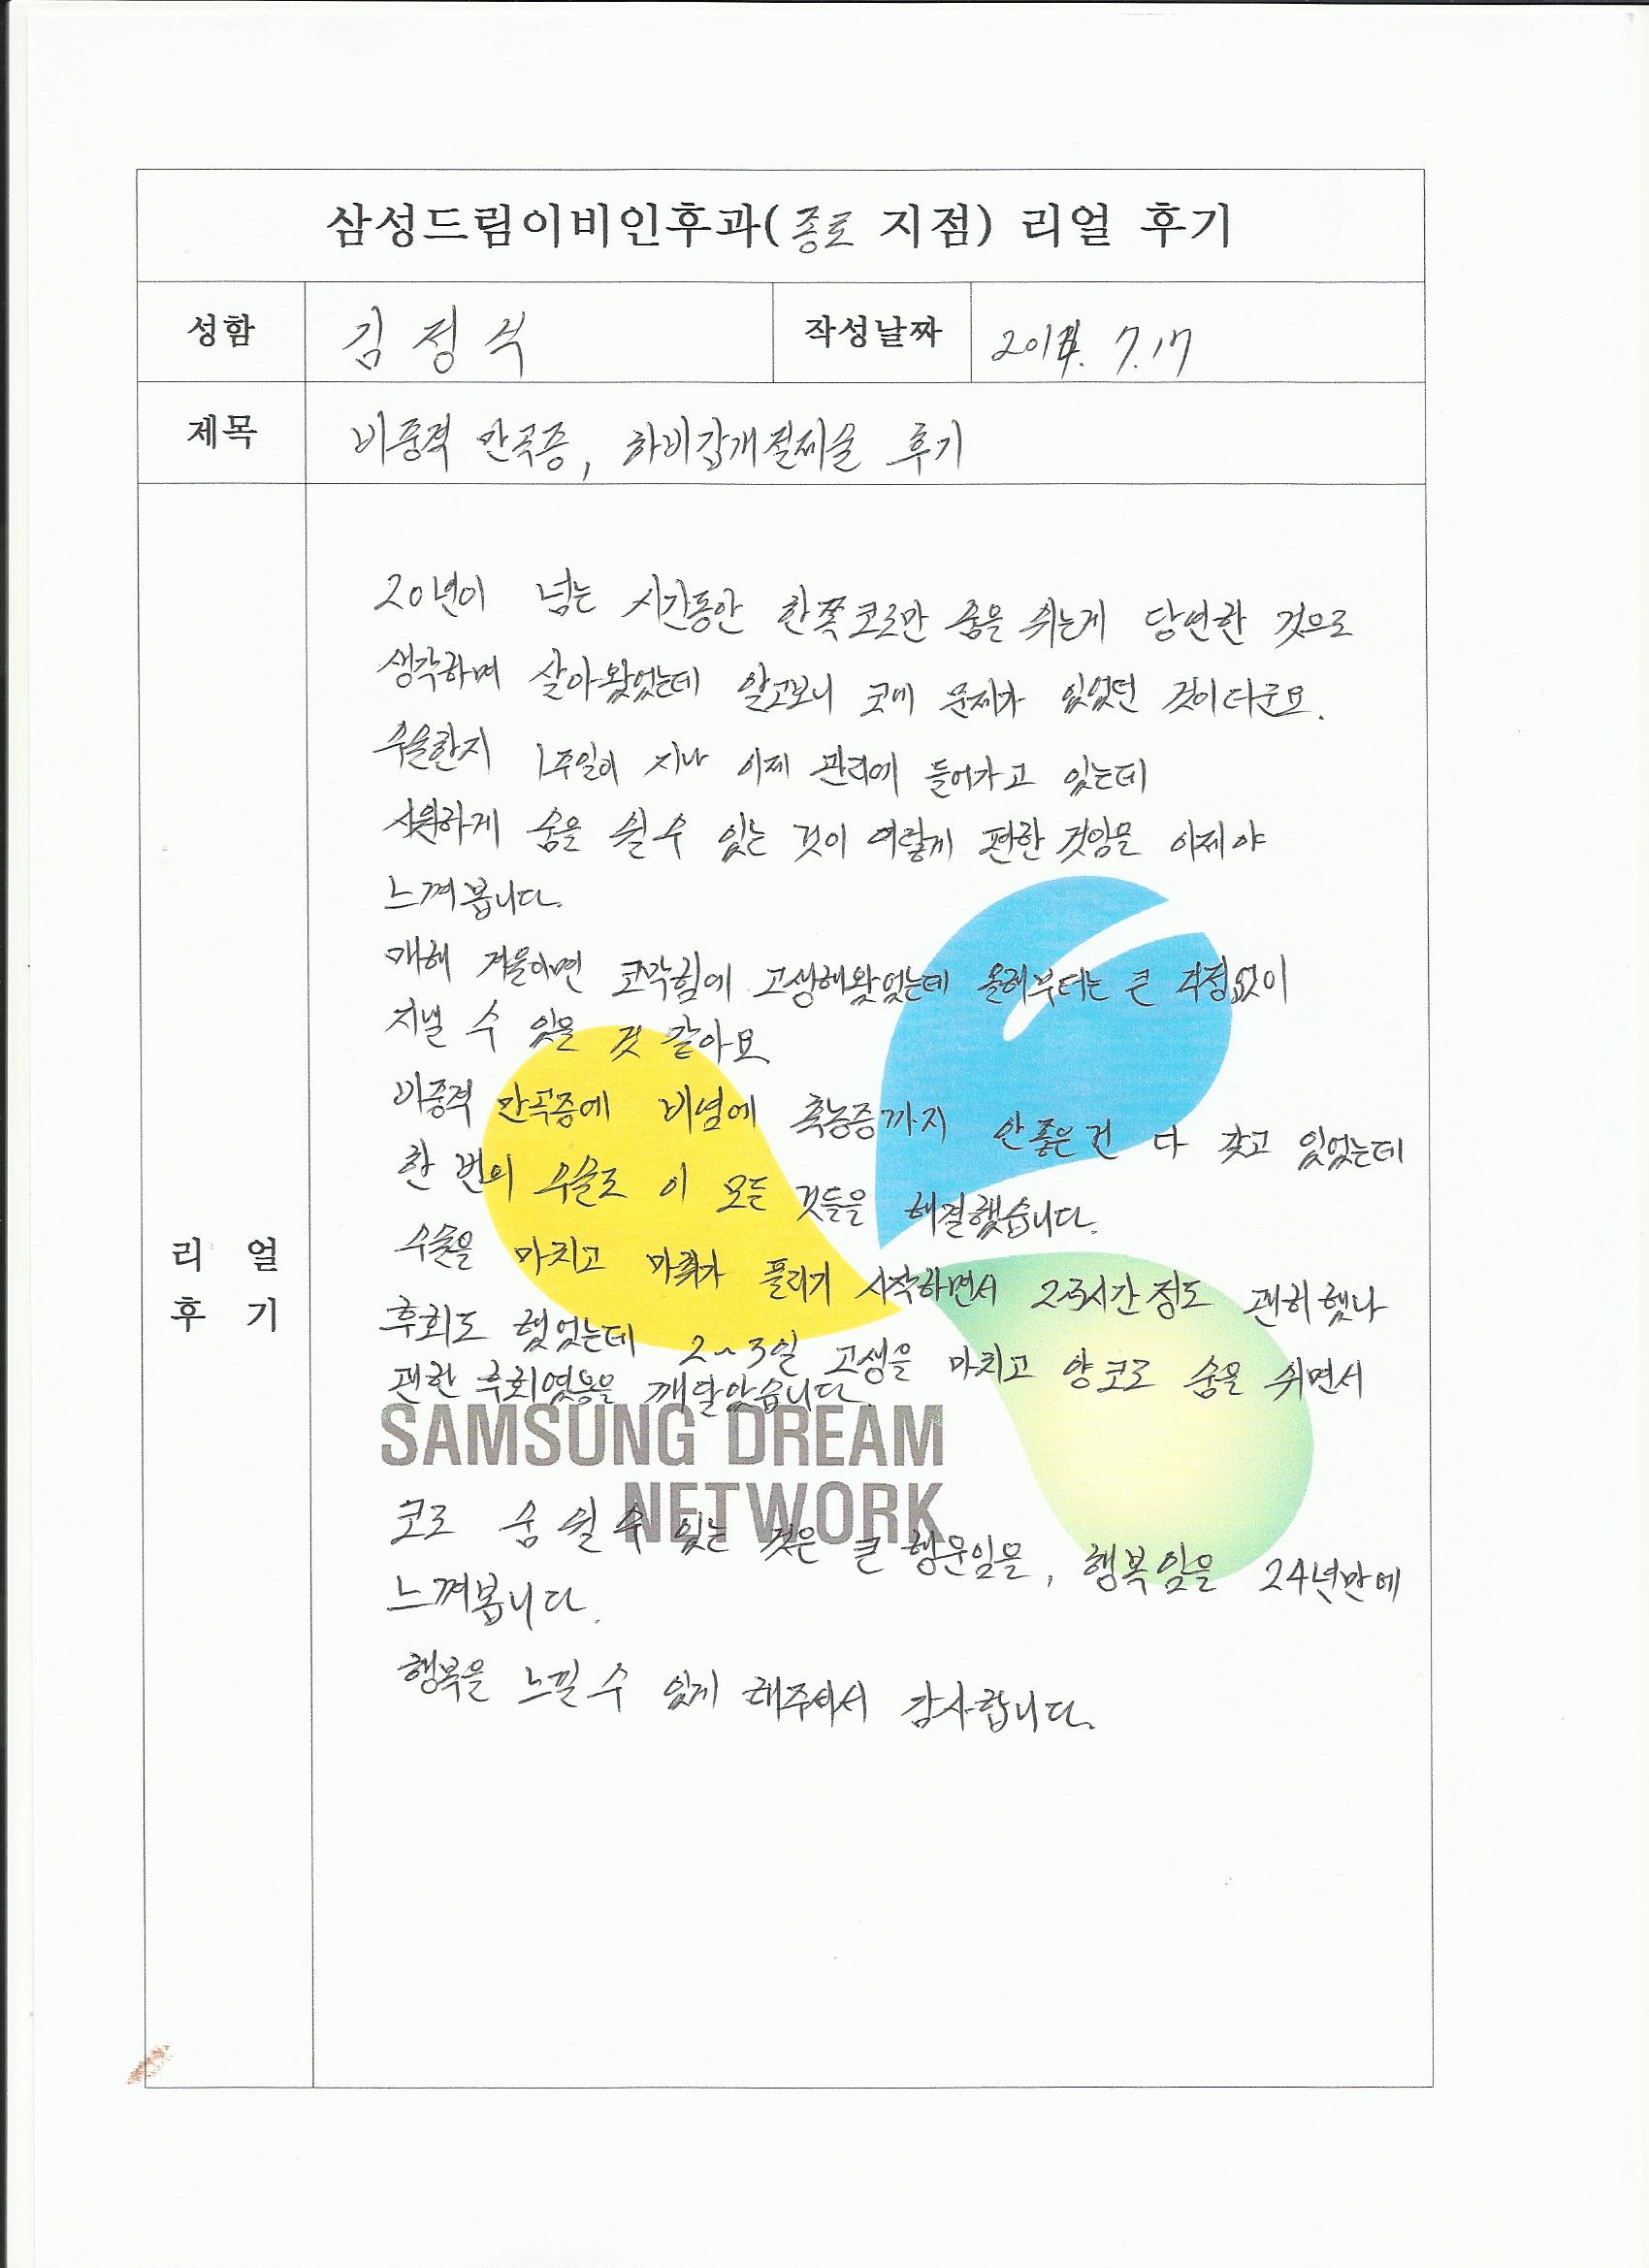 삼성드림이비인후과(종로 지점) 리얼 후기
성함 김정식 작성날짜 2014. 7. 17
제목 비중격 만곡증, 하비갑개절제술 후기
리얼 후기
20년이 넘는 시간동안 한쪽코로만 숨을 쉬는게 당연한 것으로
생각하며 살아왔었는데 알고보니 코에 문제가 있었던 것이더군요.
수술한지 1주일이 지나 이제 관리에 들어가고 있는데
시원하게 숨을 쉴 수 있는 것이 이렇게 편한 것임을 이제야
느껴봅니다.
매해 겨울이면 코막힘에 고생해왔었는데 올해부터는 큰 걱정없이
지낼 수 있을 것 같아요
비중격 만곡증에 비염에 축농증까지 안좋은건 다 갖고 있었는데
한 번의 수술로 이 모든 것들을 해결했습니다.
수술을 마치고 마취가 풀리기 시작하면서 2~3시간 정도 괜히했나
후회도 했었는데 2~3일 고생을 마치고 양코로 숨을 쉬면서
괜한 후회였음을 깨달았습니다.
SAMSUNG DREAM
NETWORK
코로 숨 쉴 수 있는 것은 큰 행운임을, 행복임을 24년만에
느껴봅니다.
행복을 느낄 수 있게 해주셔서 감사합니다.